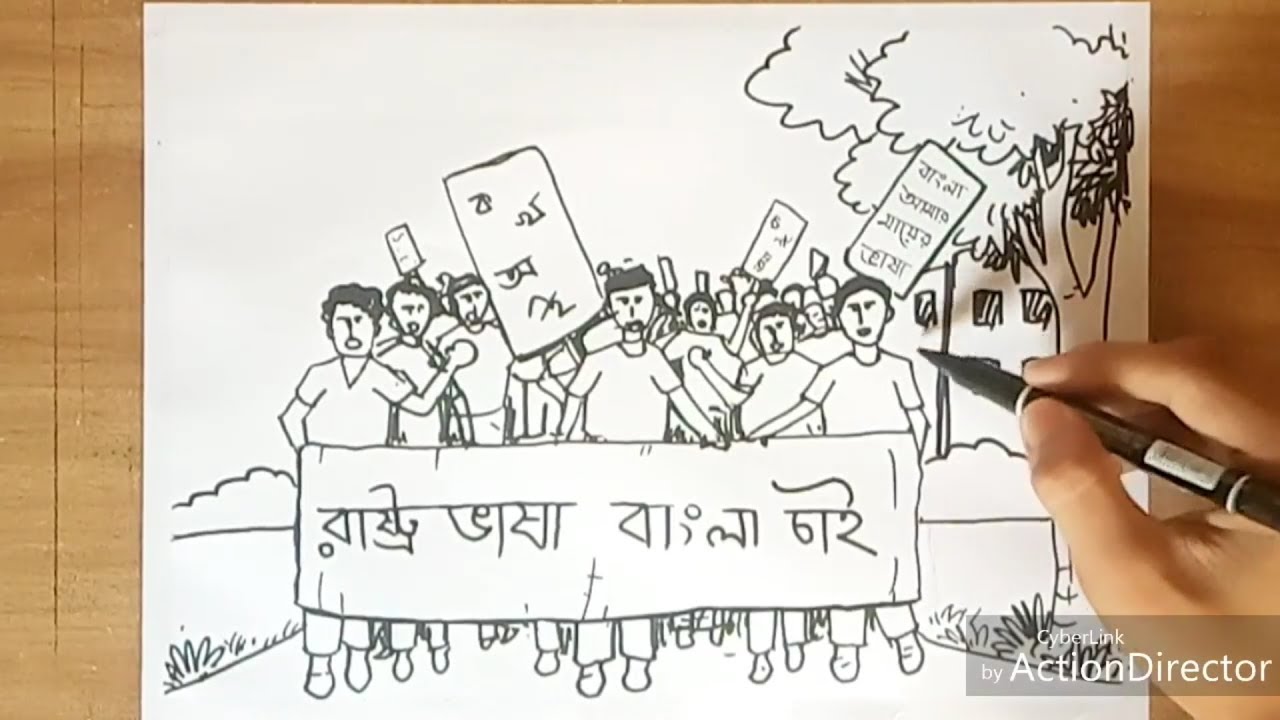 ক খ
অ
বাংলা
আমার
মায়ের
ভাষা
রাষ্ট্র ভাষা বাংলা চাই
CyberLink
by ActionDirector